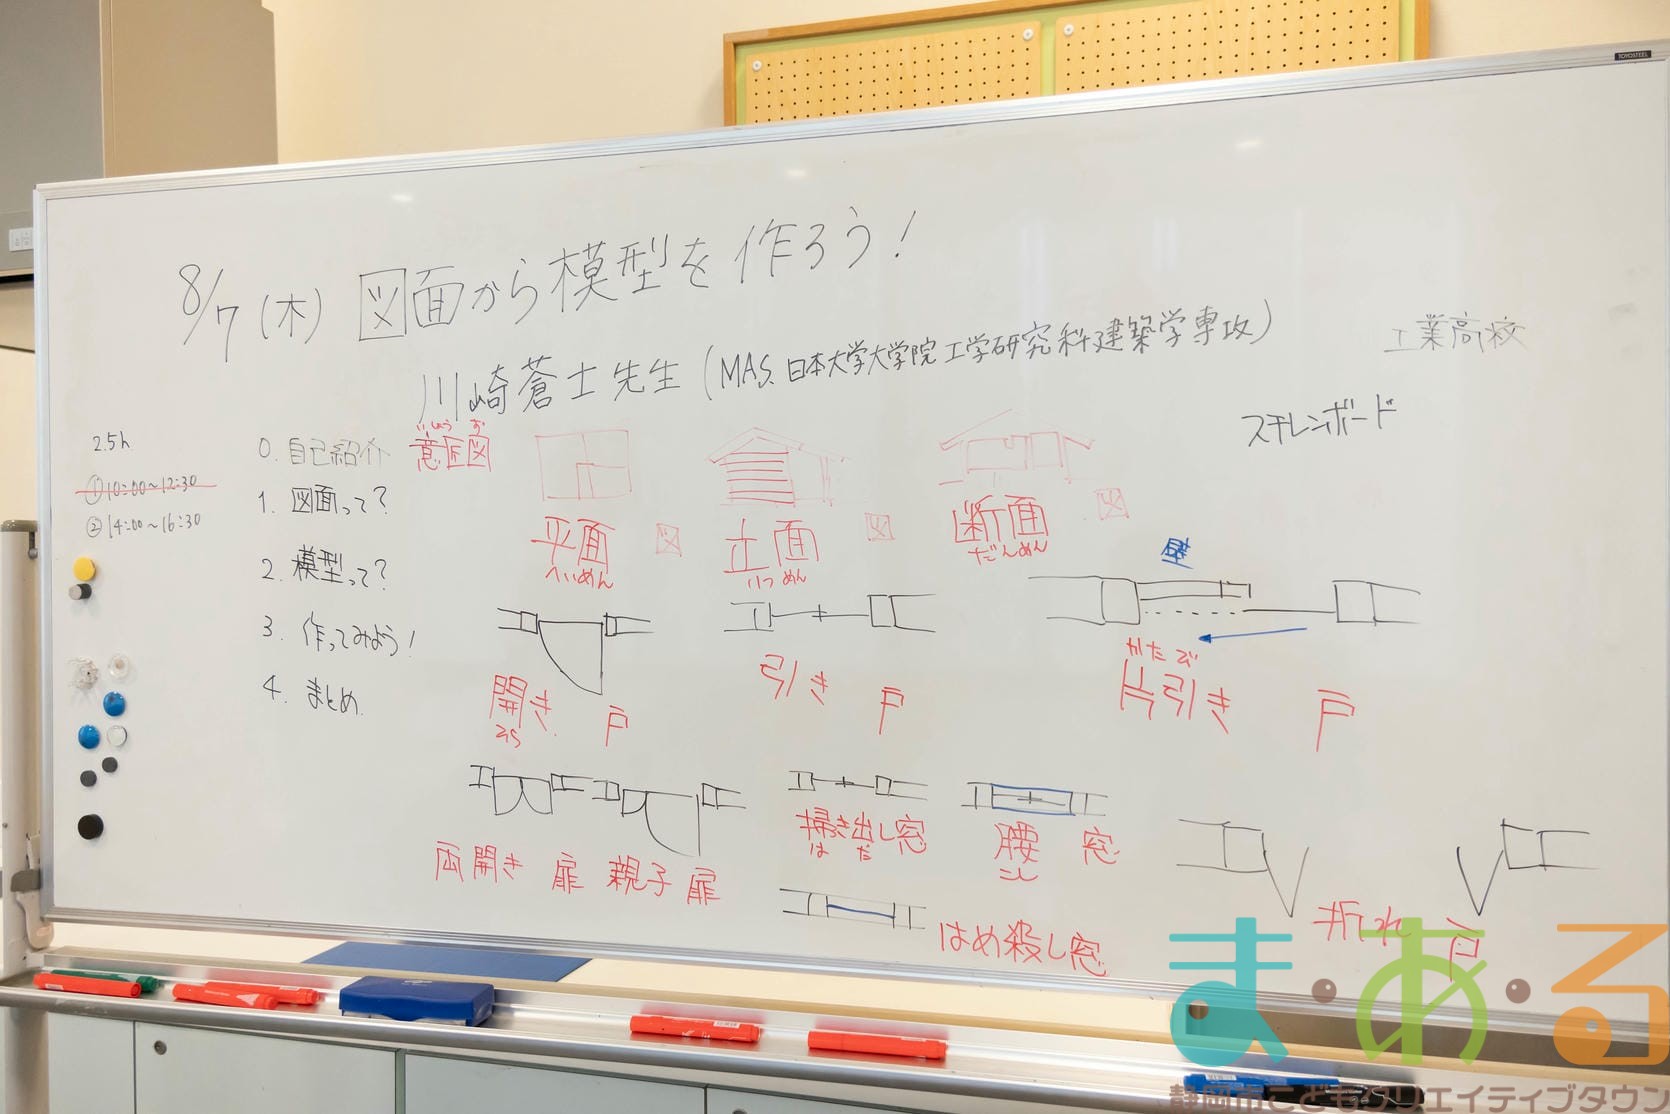 TOYOSTEEL
8/7(木) 図面から模型を作ろう!
川崎蒼士先生(MAS. 日本大学大学院工学研究科建築学専攻)
工業高校
スチレンボード
2.5h
①10:00～12:30
②14:00～16:30
0. 自己紹介
1. 図面って?
2. 模型って?
3. 作ってみよう!
4. まとめ.
いしょう ず
意匠図
平面 図
へいめん
立面 図
りつ めん
断面 図
だんめん
壁
開き 戸
ひら
引き 戸
かた び
片引き 戸
両開き 扉
親子 扉
掃き出し窓
は だ
腰 窓
こし
はめ殺し窓
折れ 戸
ま・あ・る
静岡市こどもクリエイティブタウン